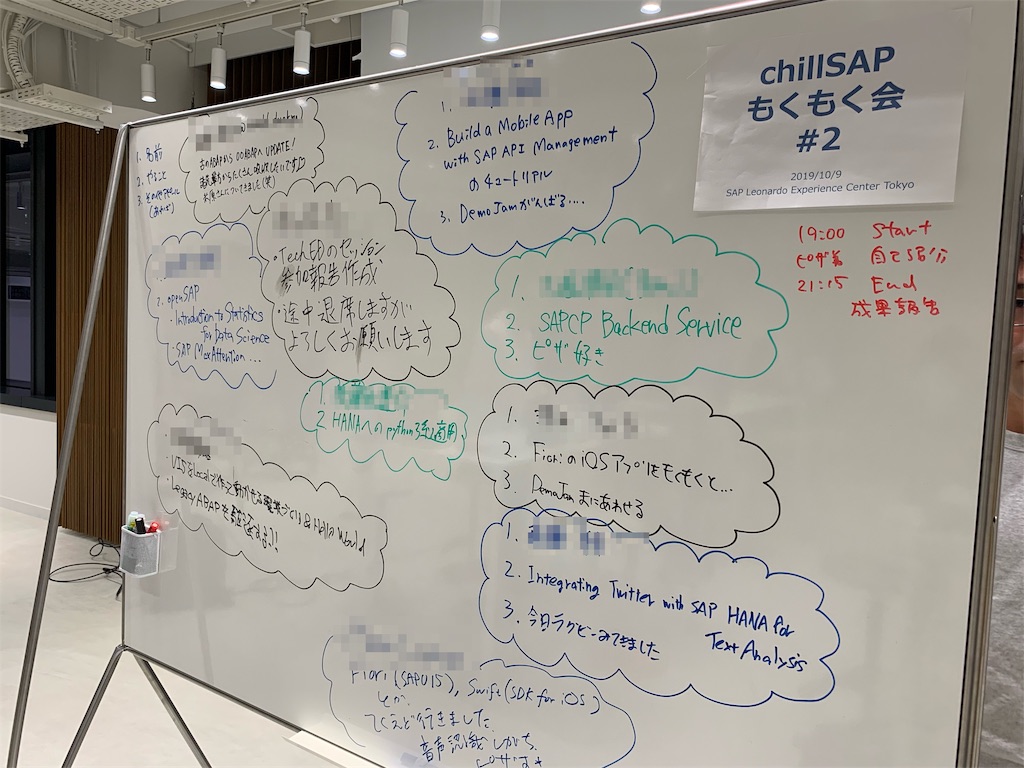 chillSAP
もくもく会
#2
2019/10/9
SAP Leonardo Experience Center Tokyo
19:00 Start
ピザ着 自己紹介
21:15 End
成果報告
1. 名前
2. やること
3. その他アピール
(あれば)
UPDATE!
1.
2. Build a Mobile App
with SAP API Management
のチュートリアル
3. DemoJamがんばる....
・TechEDのセッション
参加報告作成
・途中退席しますが
よろしくお願いします
2. openSAP
・Introduction to Statistics
for Data Science
・SAP MaxAttention ...
1.
2. SAPCP Backend Service
3. ピザ好き
2 HANAへのpython
1.
2. FioriのiOSアプリをもくもくと...
3. DemoJamまにあわせる
・UI5をLocalで作って動かせる環境づくり & Hello World
・Legacy ABAPを
1.
2. Integrating Twitter with SAP HANA for
Text Analysis
3. 今日ラグビーみてきました
Fiori (SAPUI5), Swift (SDK for iOS)
とか.
てくえど行きました.
音声認識しがち.